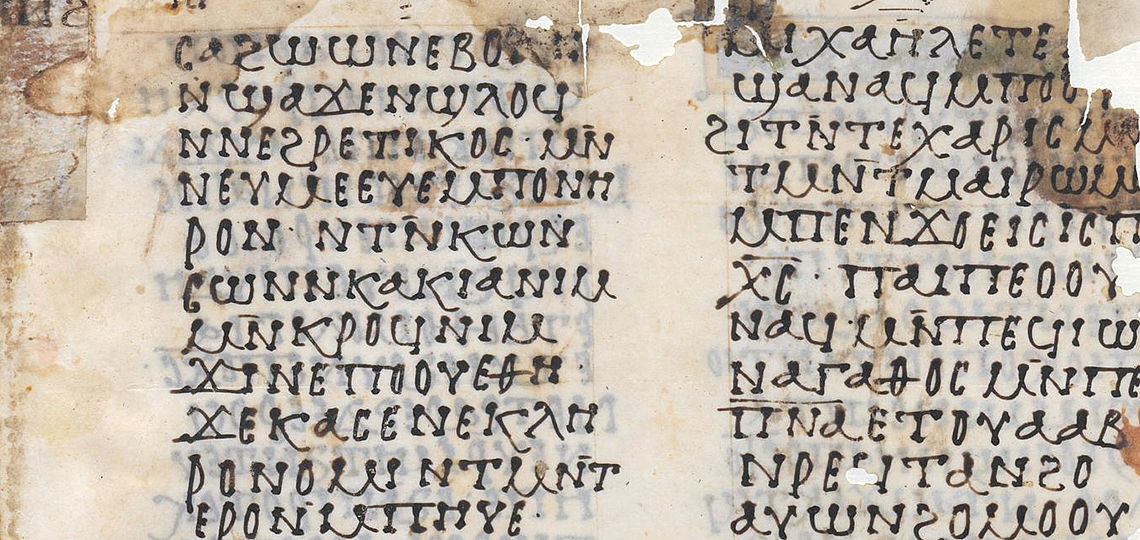 ⲥⲁϩⲱⲱⲛⲉⲃⲟⲗ
ⲛϣⲁϫⲉⲛϣⲗⲟϥ
ⲛⲛⲉϩⲣⲉⲧⲓⲕⲟⲥ· ⲙⲛ̄
ⲛⲉⲩⲙⲉⲉⲩⲉⲙⲡⲟⲛⲏ
ⲣⲟⲛ· ⲛⲧⲛ̄ⲕⲱⲛ̄
ⲥⲱⲛⲛⲕⲁⲕⲓⲁⲛⲓⲙ
ⲙⲛ̄ⲕⲣⲟϥⲛⲓⲙ
ϫⲓⲛⲉⲡⲟⲟⲩⲉⲑⲏ·
ϫⲉⲕⲁⲥⲉⲛⲉⲕⲗⲏ
ⲣⲟⲛⲟⲙⲓⲛⲧⲙⲛ̄ⲧ
ⲉⲣⲟⲛⲙⲡⲏⲩⲉ·
ϣⲁⲛⲁϥⲙⲡⲟⲟⲩ
ϩⲓⲧⲛ̄ⲧⲉⲭⲁⲣⲓⲥ ⲙ
ⲧⲙⲛ̄ⲧⲙⲁⲓⲣⲱⲙ
ⲙⲡⲉⲛϫⲟⲉⲓⲥⲓⲥⲡ
ⲭ̄ⲥ̄· ⲡⲁⲓⲡⲉⲟⲟⲩ
ⲛⲁϥ·ⲙⲛ̄ⲡⲉϥⲓⲱ
ⲛⲁⲅⲁⲑⲟⲥ ⲙⲛ̄ⲡⲉ
ⲡ̄ⲛ̄ⲁ̄ⲉⲧⲟⲩⲁⲁⲃ
ⲛⲣⲉϥⲧⲁⲛϩⲟ
ⲁⲩⲱⲛϩⲟⲙⲟⲟⲩ